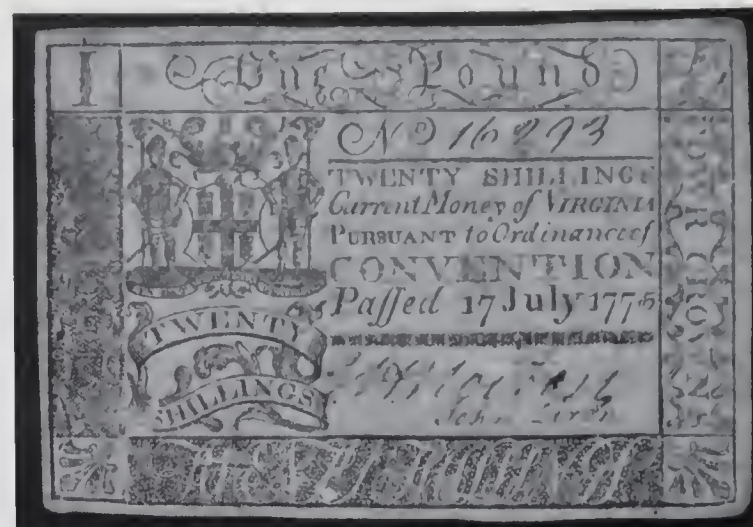 I
One Pound
No 16293
TWENTY SHILLINGS
Current Money of VIRGINIA
PURSUANT to Ordinance of
CONVENTION
Paſſed 17 July 1775
TWENTY
SHILLINGS
John